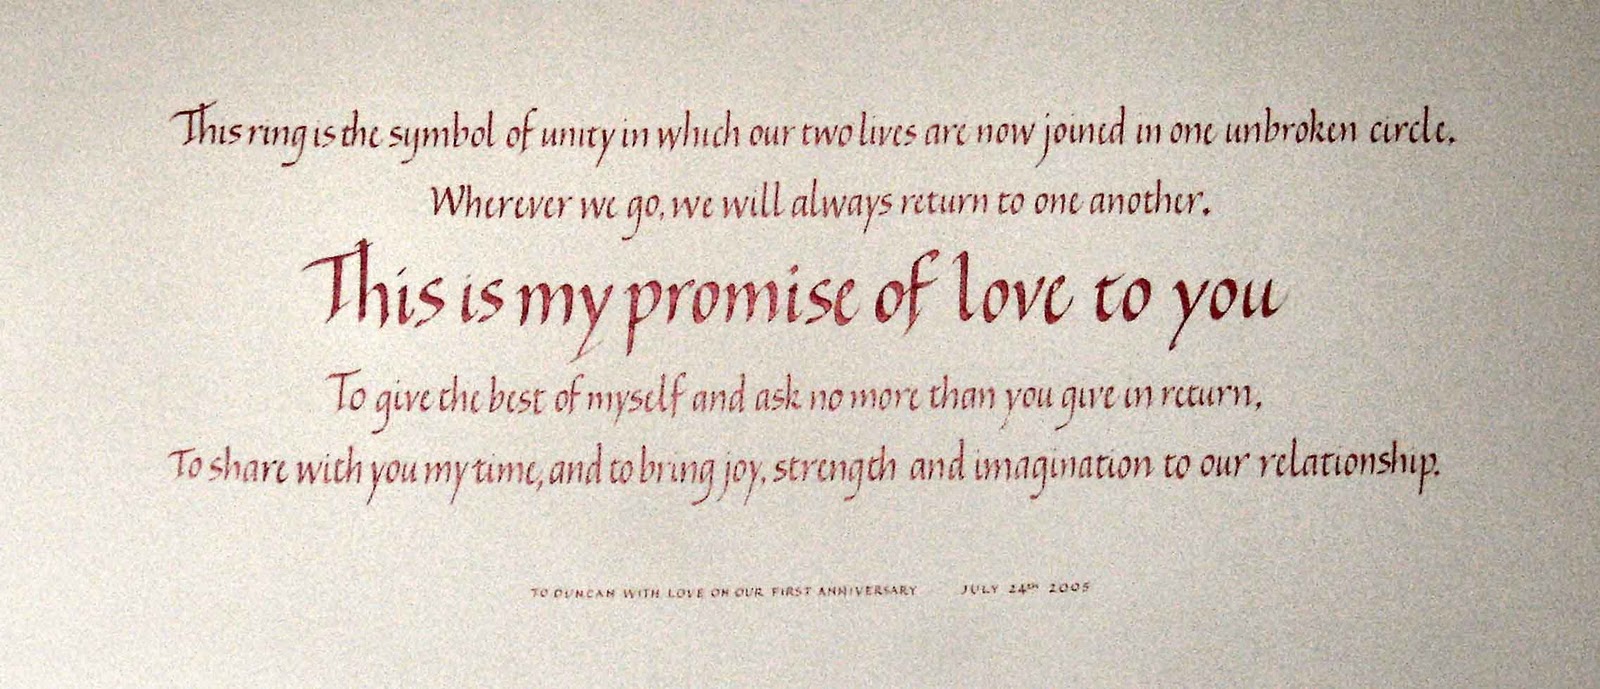 This ring is the symbol of unity in which our two lives are now joined in one unbroken circle.
Wherever we go, we will always return to one another.
This is my promise of love to you
To give the best of myself and ask no more than you give in return,
To share with you my time, and to bring joy, strength and imagination to our relationship.
TO DUNCAN WITH LOVE ON OUR FIRST ANNIVERSARY JULY 24th 2005